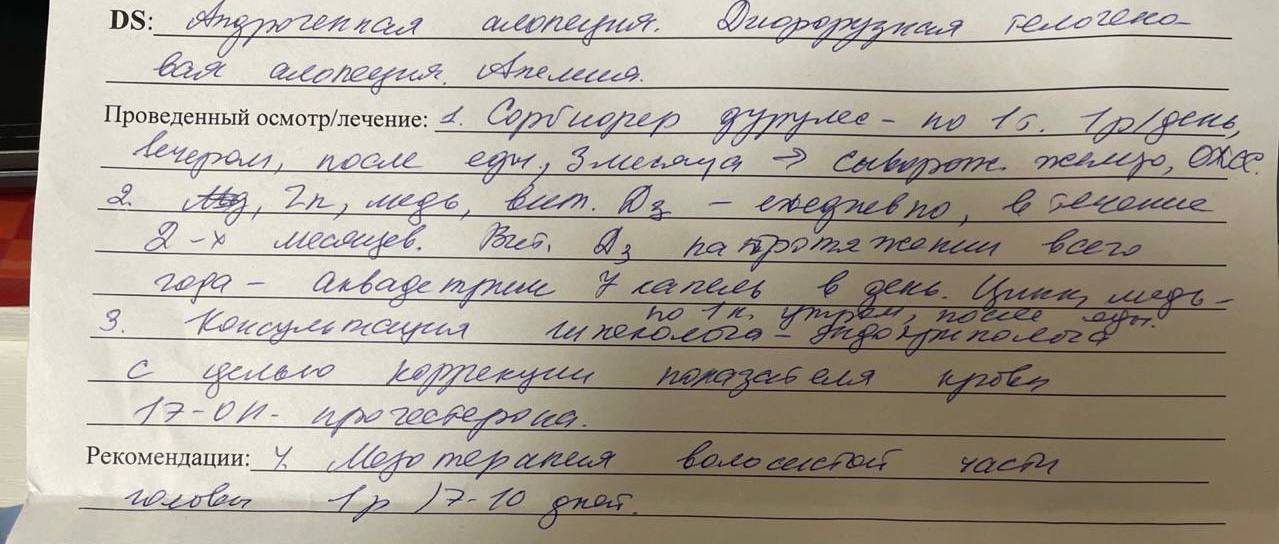 DS: Андрогенная алопеция. Диффузная телогено-
вая алопеция. Анемия.
Проведенный осмотр/лечение: 1. Сорбифер дурулес - по 1т. 1р/день,
вечером, после еды, 3 месяца → сыворот. железо, ОЖСС.
2. Zn, медь, вит. Д3 - ежедневно, в течение
2-х месяцев. Вит. Д3 на протяжении всего
года - аквадетрим 4 капель в день. Цинк, медь -
по 1 к. утром, после еды.
3. Консультация гинеколога - эндокринолога
с целью коррекции показателя крови
17-ОН- прогестерона.
Рекомендации: 4. Мезотерапия волосистой части
головы 1р/7-10 дней.